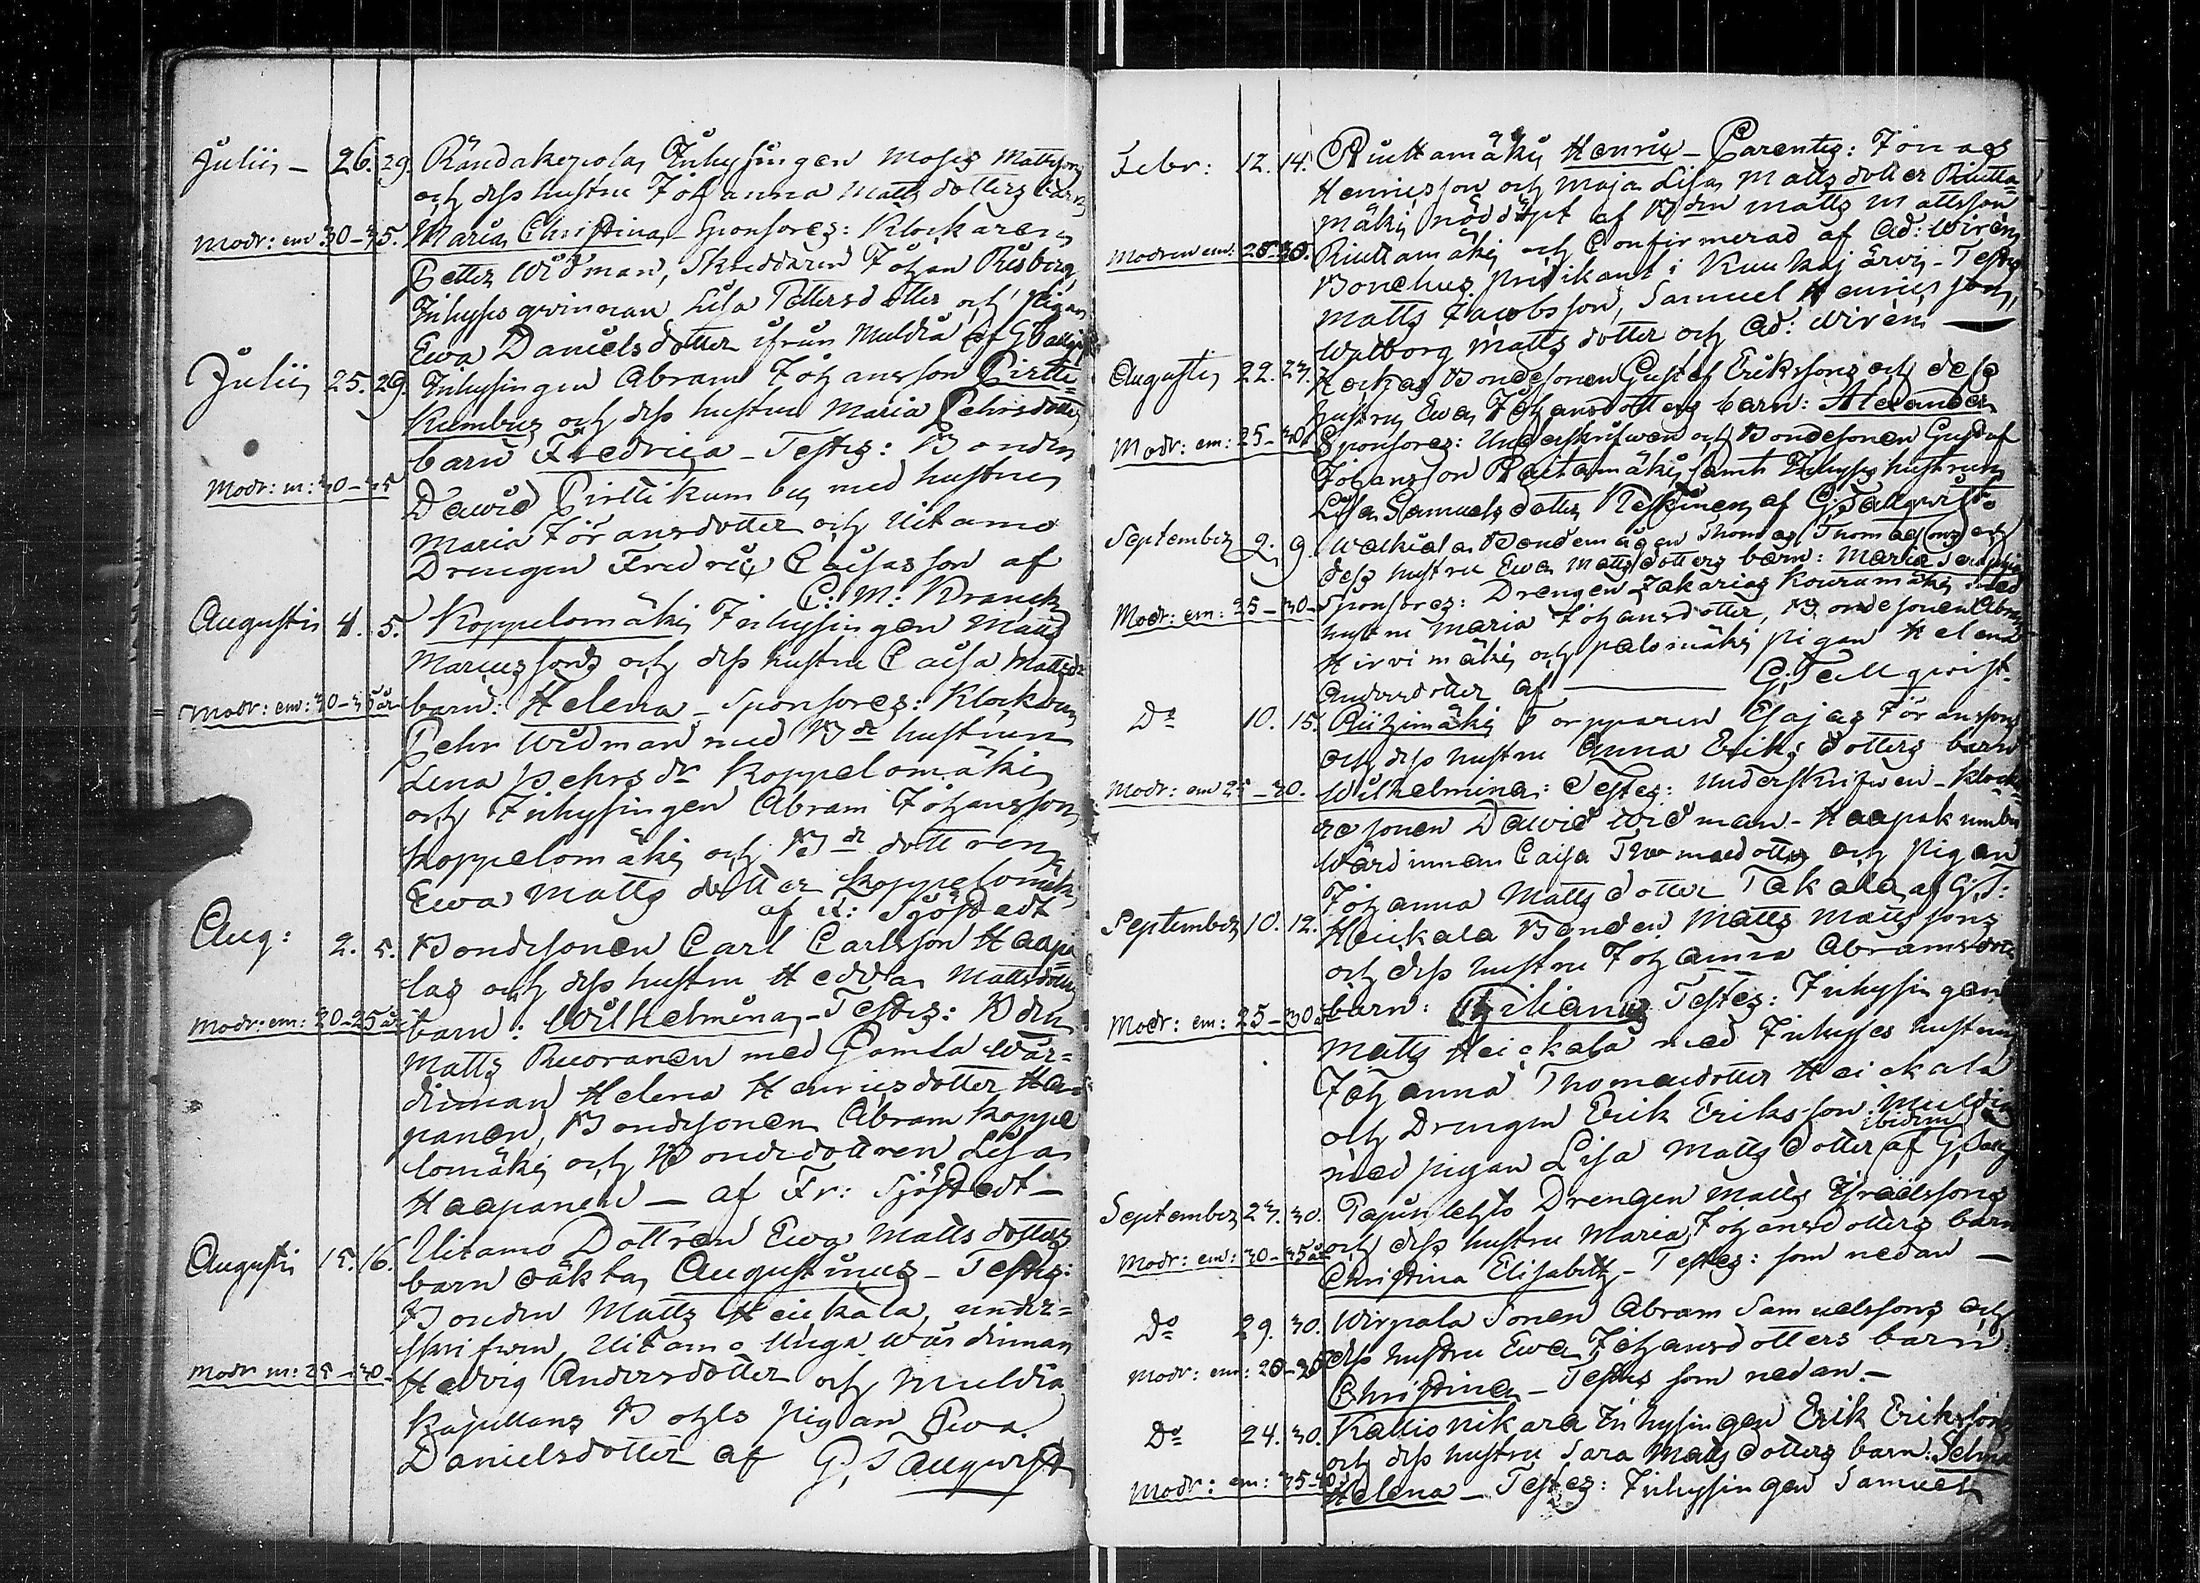 Julii, - 26. 29. Rändakejola, Inhysingen Moses Mattssons
och dess hustru Johanna Mattsdotters barn
Modr: em 30-35. Maria Christina, Sponsores: Klockaren
Petter Widman, Skreddaren Johan Risberg
Inhyses qwinnan Lisa Pettersdotter och pigan
Ewa Danielsdotter ifrån Muldia af G. Tallqvist
Julii, 25. 29. Inhysingen Abram Johansson Pirtti-
Kumbus och dess hustru Maria Pehrsdotters
barn Fredrica - Testes: Bonden
Modr: m: 30-35 Dawid Pirttikumbu, med hustru
Maria Göransdotter och Uitamo
Drengen Fredric Caisasson af
C: M: Kranck
Augusti 4. 5. Koppelomäki, Inhysingen Matts
Marcussons och dess hustru Caisa Mattsdr
Modr: em: 30-35 år barn: Helena - Sponsores: Klockaren
Pehr Widman med Bde hustrun
Lena Pehrsdr Koppelomäki
och Inhysingen Abram Johansson
Koppelomäki och Bde dottren
Ewa Matts dotter Koppelomäki
af Fr: Sjöstedt
Aug: 2. 5. Bondesonen Carl Carlsson Haapa
las och dess hustru Hedda Mattsdotters
Modr: em: 20-25 år barn: Wilhelmina, - Testes: Bden
Matts Ruoranen med Gamla Wär-
dinnan Helena Henricsdotter Haa-
panen, Bondesonen Abram Koppe
lomäki och Bondedottren Lisa
Haapanen - af Fr: Sjöstedt -
Augusti 15. 16. Uitamo Dottren Ewa Mattsdotters
barn oäkta, Augustinus - Testes:
Bonden Matts Heickala, under-
skrifwen, Uitamo Unga Wärdinnan
Modr m: 25-30 Hedvig Andersdotter och Muldia
Kapellans Bohls pigan Ewa
Danielsdotter af G, Tallqwist
Febr: 12. 14. Riuttamäki, Henric - Parentes: Jonas
Henricsson och Maja Lisa Mattsdotter Riutta-
mäki, nöddöpt af Bden Matts Mattsson
Modren em: 25-30. Riuttamäki och Confirmerad af Ad: Wirén
Bonehus predikant i Kuuhajärvi - Testes
Matts Jacobsson, Samuel Henricsson,
Walborg Mattsdotter och Ad: Wirén
Augusti, 22. 27. Bondesonen Gustaf Erikssons och dess
hustru Ewa Johansdotters barn: Alexander
Modr: em: 25-30. Sponsores: Underskrifwen och Bondesonen Gustaf
Johansson Rautamäki, samt Inhyses hustrun
Lisa Samuelsdotter Keskinen, af G, Tallqwist.
September 9. 9. Walkiala, Bondemågen Thomas Thomassons och
dess hustru Ewa Mattsdotters barn: Maria Serafina
Modr: em: 25-30 Sponsores: Drengen Zakarias Kouramäki, med
hustru Maria Johansdotter, Bondesonen Abram
Hirvimäki, och Palomäki pigan Helena
Andersdotter af G, Tallqwist.
Do 10. 15. Riihimäki Torpparen Esajas Göranssons
och dess hustru Anna Eriksdotters barn
Modr: em 25-30. Wilhelmina: Testes: Underskrifwen - Klocka-
re sonen Dawid Widman - Haapakumbu
Wärdinnan Caisa Thomasdotter och pigan
Johanna Mattsdotter Takala, af G, T:
September 10. 12. Heickala Bonden Matts Mattssons
och dess hustru Johanna Abramsdotters
Modr: em: 25-30 år barn: Testes: Inhysingen
Matts Heickala med Inhyses hustrun
Johanna Thomasdotter Heickala
och Drengen Erik Eriksson Muldia
med pigan Lisa Mattsdotter ibidem af G, Tallq
September 27. 30. Drengen Matts Israelssons
Modr: em: 30-35 år och dess hustru Maria Johansdotters barn
Christina Elisabeth - Testes: som nedan -
Do 29. 30. Wirpala Sonen Abram Samuelssons och
Modr: em: 20-25 dess hustru Ewa Johansdotters barn:
Christina, - Testes som nedan. -
Do 24. 30. Kallionikara Inhysingen Erik Erikssons
och dess hustru Sara Mattsdotters barn: Selma
Modr: em: 35-40 Helena - Testes: Inhysingen Samuel